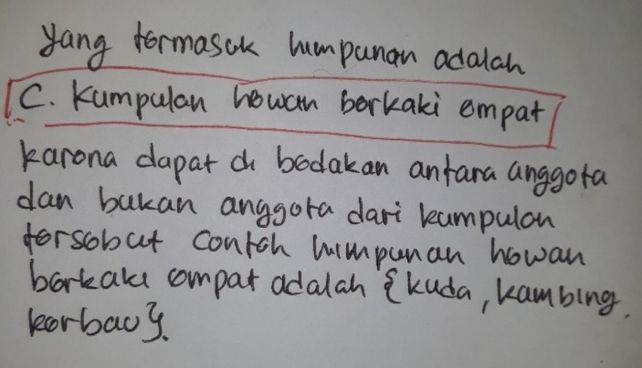 yang termasuk himpunan adalah
C. Kumpulan hewan berkaki empat
karena dapat di bedakan antara anggota
dan bukan anggota dari kumpulan
tersebut Contoh himpunan hewan
berkaki empat adalah {kuda, kambing,
kerbau}.